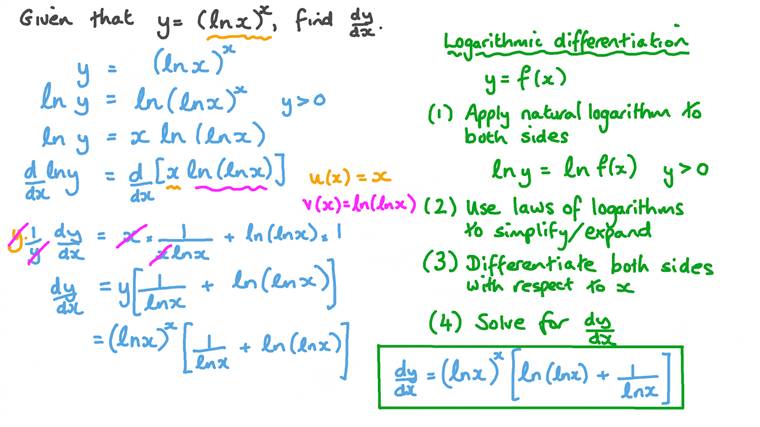 Given that y = (ln x)^x, find dy/dx.
y = (ln x)^x
ln y = ln(ln x)^x y > 0
ln y = x ln(ln x)
d/dx ln y = d/dx [x ln(ln x)]
u(x) = x
v(x) = ln(ln x)
y · 1/y dy/dx = x × 1/(x ln x) + ln(ln x) × 1
dy/dx = y[1/(ln x) + ln(ln x)]
= (ln x)^x [1/(ln x) + ln(ln x)]
Logarithmic differentiation
y = f(x)
(1) Apply natural logarithm to
both sides
ln y = ln f(x) y > 0
(2) Use laws of logarithms
to simplify/expand
(3) Differentiate both sides
with respect to x
(4) Solve for dy/dx
dy/dx = (ln x)^x [ln(ln x) + 1/(ln x)]